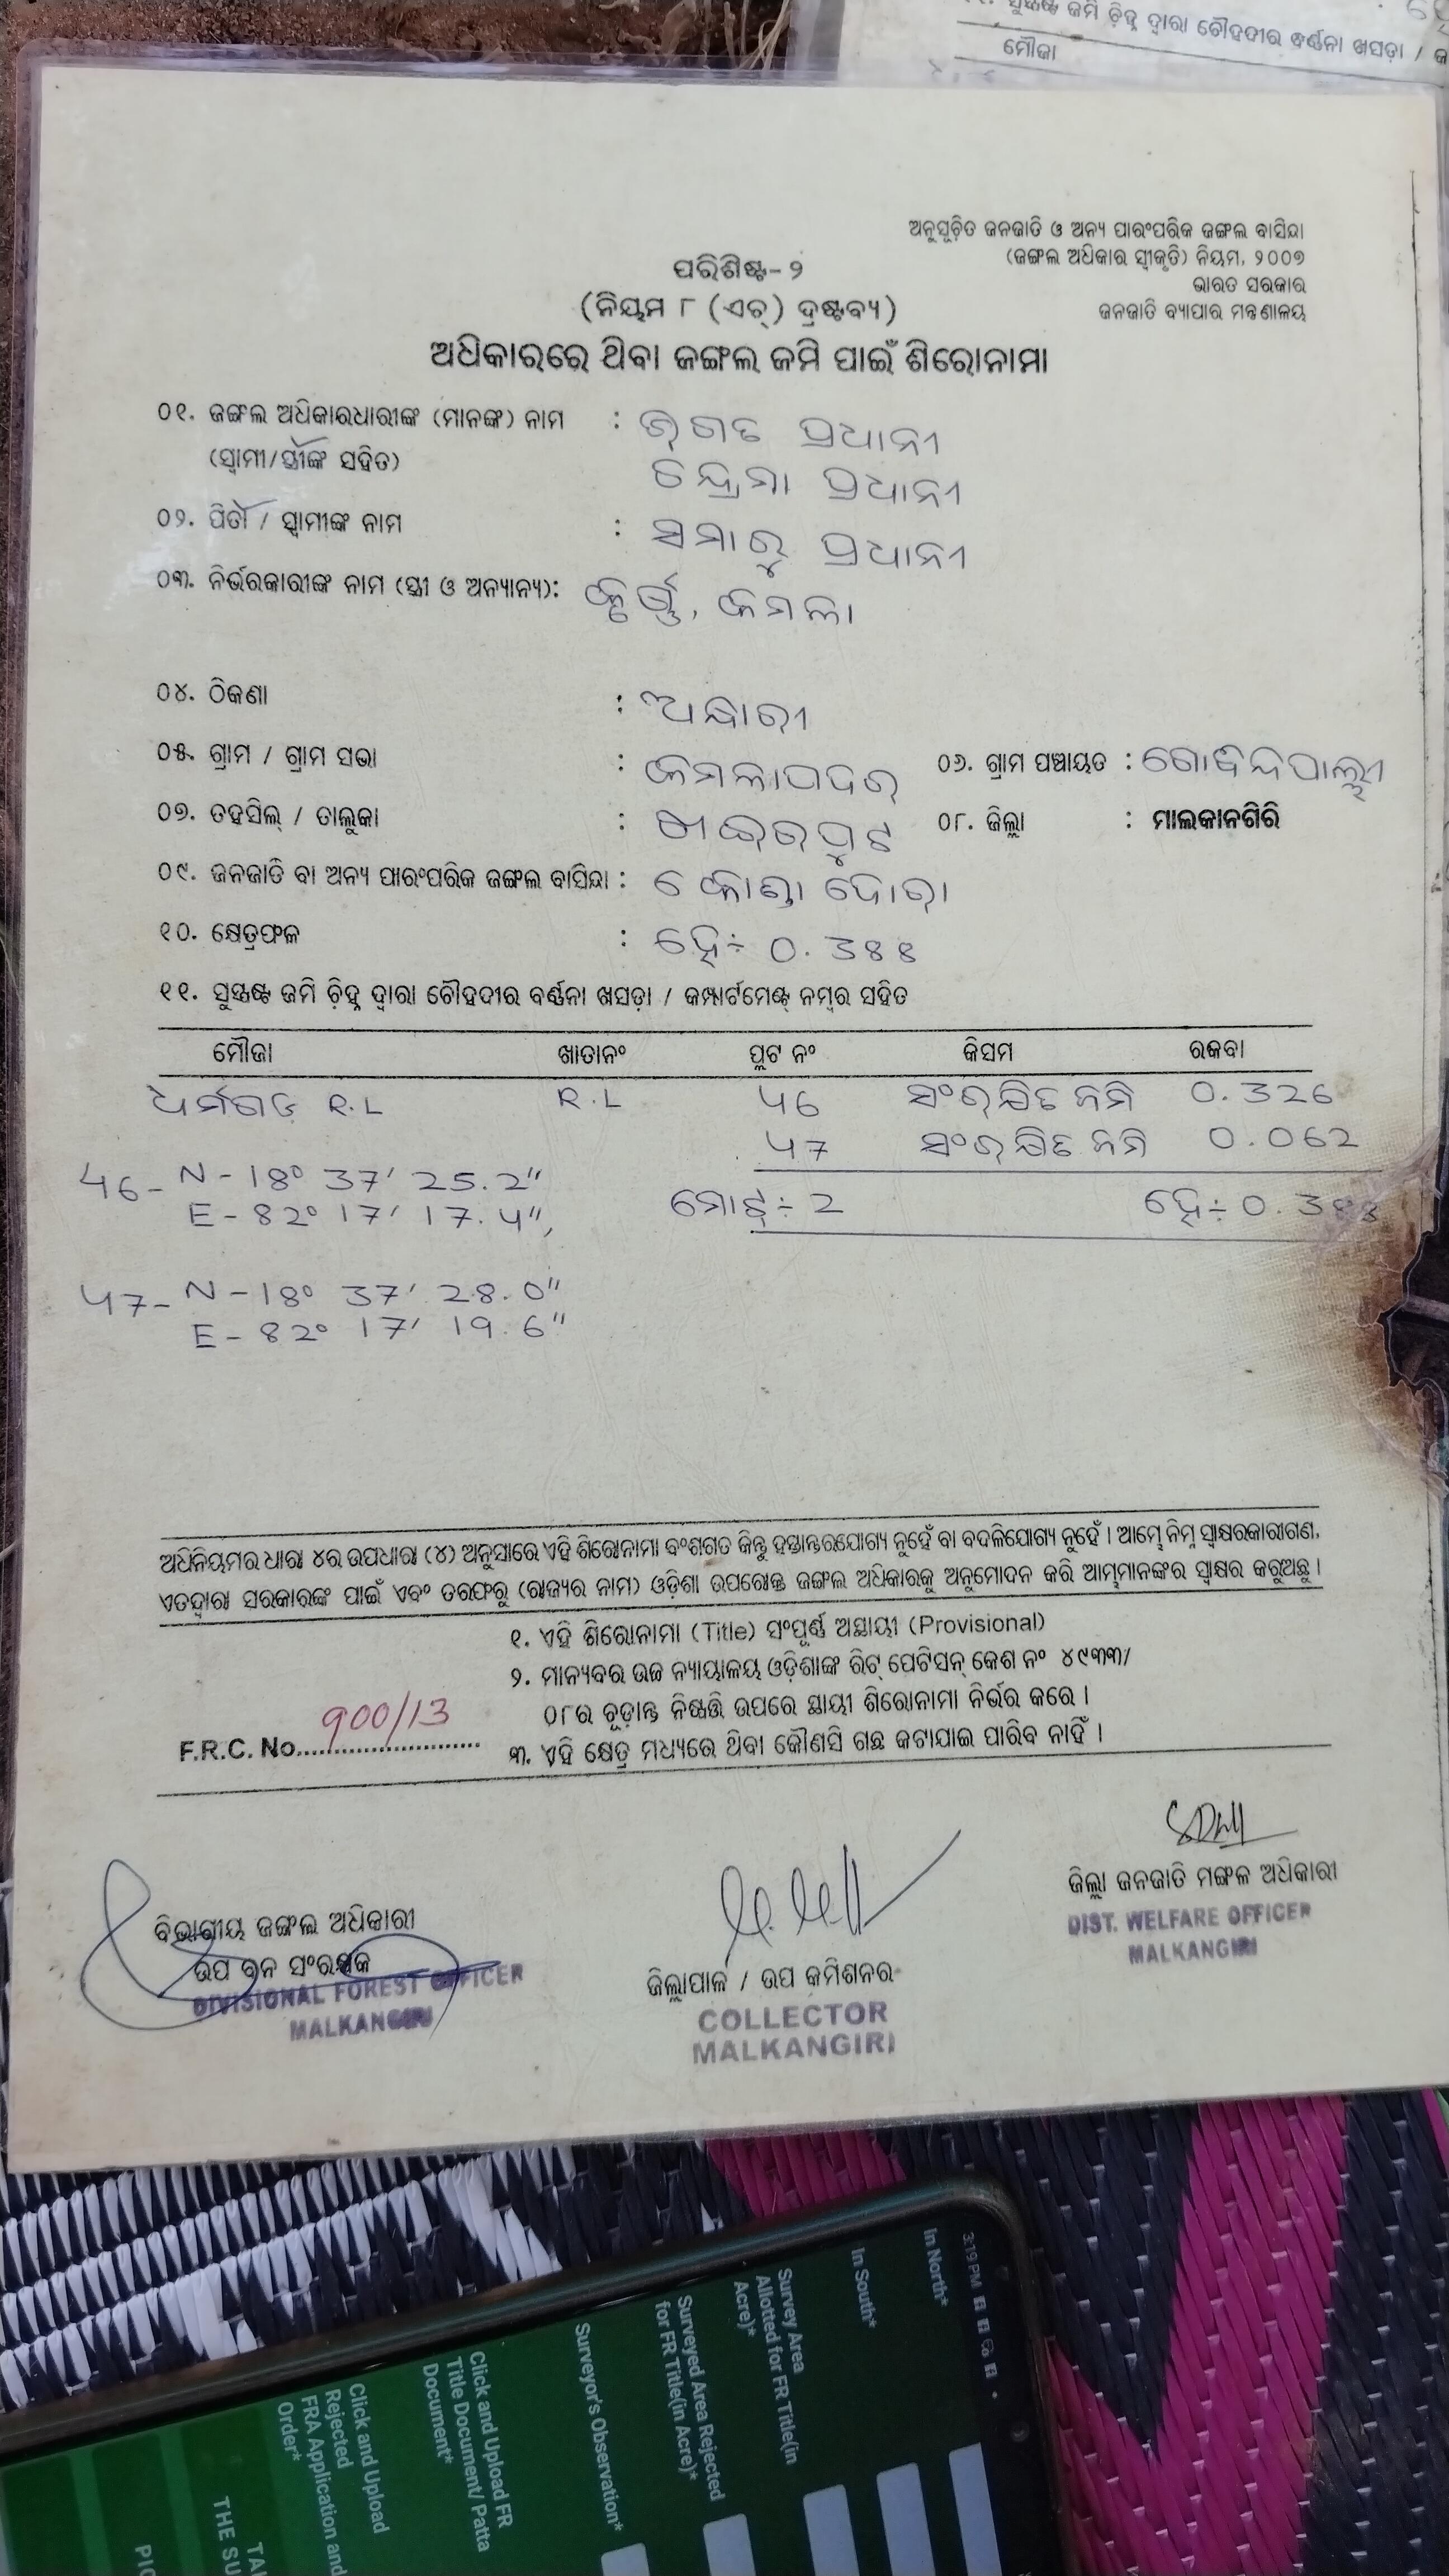 ସୁସ୍ପଷ୍ଟ ଜମି ଚିହ୍ନ ଦ୍ୱାରା ଚୌହଦୀର ବର୍ଣ୍ଣନା ଖସଡ଼ା /
ମୌଜା
ଅନୁସୂଚିତ ଜନଜାତି ଓ ଅନ୍ୟ ପାରଂପରିକ ଜଙ୍ଗଲ ବାସିନ୍ଦା
(ଜଙ୍ଗଲ ଅଧିକାର ସ୍ୱୀକୃତି) ନିୟମ, ୨୦୦୭
ଭାରତ ସରକାର
ଜନଜାତି ବ୍ୟାପାର ମନ୍ତ୍ରଣାଳୟ
ପରିଶିଷ୍ଟ-୨
(ନିୟମ ୮ (ଏଚ୍) ଦ୍ରଷ୍ଟବ୍ୟ)
ଅଧିକାରରେ ଥିବା ଜଙ୍ଗଲ ଜମି ପାଇଁ ଶିରୋନାମା
୦୧. ଜଙ୍ଗଲ ଅଧିକାରଧାରୀଙ୍କ (ମାନଙ୍କ) ନାମ : ଭଗତ ପ୍ରଧାନୀ
(ସ୍ୱାମୀ/ସ୍ତ୍ରୀଙ୍କ ସହିତ) ଚନ୍ଦ୍ରମା ପ୍ରଧାନୀ
୦୨. ପିତା / ସ୍ୱାମୀଙ୍କ ନାମ : ସମାରୁ ପ୍ରଧାନୀ
୦୩. ନିର୍ଭରକାରୀଙ୍କ ନାମ (ସ୍ତ୍ରୀ ଓ ଅନ୍ୟାନ୍ୟ): କମଳା
୦୪. ଠିକଣା : ଅନ୍ଧାରୀ
୦୫. ଗ୍ରାମ / ଗ୍ରାମ ସଭା : କମଳାପଦର
୦୬. ଗ୍ରାମ ପଞ୍ଚାୟତ : ଗୋବିନ୍ଦପାଲ୍ଲୀ
୦୭. ତହସିଲ୍ / ତାଲୁକା : ଖଇରପୁଟ
୦୮. ଜିଲ୍ଲା : ମାଲକାନଗିରି
୦୯. ଜନଜାତି ବା ଅନ୍ୟ ପାରଂପରିକ ଜଙ୍ଗଲ ବାସିନ୍ଦା : କୋଣ୍ଡା ଦୋରା
୧୦. କ୍ଷେତ୍ରଫଳ : ହେ÷ 0.388
୧୧. ସୁସ୍ପଷ୍ଟ ଜମି ଚିହ୍ନ ଦ୍ୱାରା ଚୌହଦୀର ବର୍ଣ୍ଣନା ଖସଡ଼ା / କମ୍ପାର୍ଟମେଣ୍ଟ୍ ନମ୍ବର ସହିତ
ମୌଜା ଖାତାନଂ ପ୍ଲଟ ନଂ କିସମ ରକବା
ଧର୍ମଗଡ R.L R.L 46 ସଂରକ୍ଷିତ ଜମି 0.326
47 ସଂରକ୍ଷିତ ଜମି 0.062
46- N-18° 37' 25.2"
E-82° 17' 17.4",
ମୋଟ୍÷ 2 ହେ÷ 0.388
47- N-18° 37' 28.0"
E-82° 17' 19.6"
ଅଧିନିୟମର ଧାରା ୪ର ଉପଧାରା (୪) ଅନୁସାରେ ଏହି ଶିରୋନାମା ବଂଶଗତ କିନ୍ତୁ ହସ୍ତାନ୍ତରଯୋଗ୍ୟ ନୁହେଁ ବା ବଦଳିଯୋଗ୍ୟ ନୁହେଁ । ଆମ୍ଭେ ନିମ୍ନ ସ୍ୱାକ୍ଷରକାରୀଗଣ,
ଏତଦ୍ୱାରା ସରକାରଙ୍କ ପାଇଁ ଏବଂ ତରଫରୁ (ରାଜ୍ୟର ନାମ) ଓଡ଼ିଶା ଉପରୋକ୍ତ ଜଙ୍ଗଲ ଅଧିକାରକୁ ଅନୁମୋଦନ କରି ଆମ୍ଭମାନଙ୍କର ସ୍ୱାକ୍ଷର କରୁଅଛୁ ।
୧. ଏହି ଶିରୋନାମା (Title) ସଂପୂର୍ଣ୍ଣ ଅସ୍ଥାୟୀ (Provisional)
୨. ମାନ୍ୟବର ଉଚ୍ଚ ନ୍ୟାୟାଳୟ ଓଡ଼ିଶାଙ୍କ ରିଟ୍ ପେଟିସନ୍ କେଶ ନଂ ୪୯୩୩/
୦୮ର ଚୂଡ଼ାନ୍ତ ନିଷ୍ପତ୍ତି ଉପରେ ସ୍ଥାୟୀ ଶିରୋନାମା ନିର୍ଭର କରେ ।
F.R.C. No. 900/13
୩. ଏହି କ୍ଷେତ୍ର ମଧ୍ୟରେ ଥିବା କୌଣସି ଗଛ କଟାଯାଇ ପାରିବ ନାହିଁ ।
ବିଭାଗୀୟ ଜଙ୍ଗଲ ଅଧିକାରୀ
ଉପ ବନ ସଂରକ୍ଷକ
DIVISIONAL FOREST OFFICER
MALKANGIRI
ଜିଲ୍ଲାପାଳ / ଉପ କମିଶନର
COLLECTOR
MALKANGIRI
ଜିଲ୍ଲା ଜନଜାତି ମଙ୍ଗଳ ଅଧିକାରୀ
DIST. WELFARE OFFICER
MALKANGIRI
3:19 PM
In North*
In South*
Survey Area
Allotted for FR Title(in
Acre)*
Surveyed Area Rejected
for FR Title(in Acre)*
Surveyor's Observation*
Click and Upload FR
Title Document/ Patta
Document*
Click and Upload
Rejected
FRA Application and
Order*